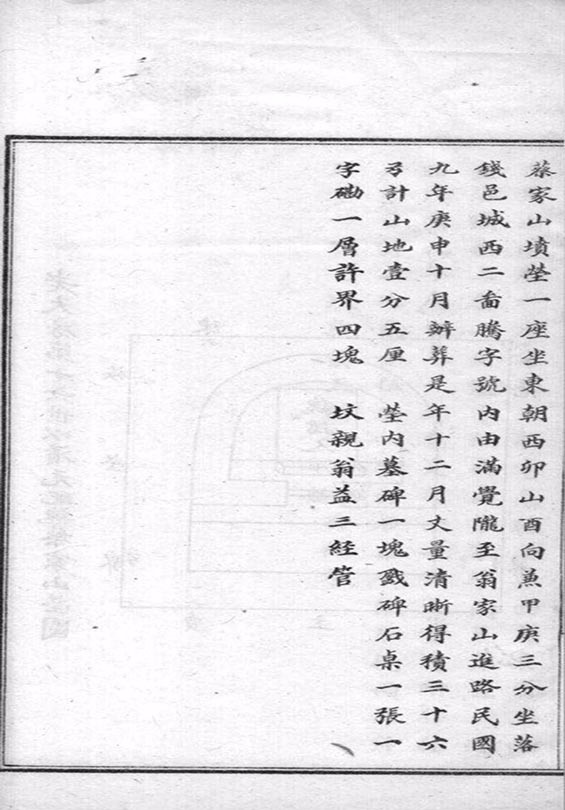 蔡家山墳塋一座坐東朝西卯山酉向兼甲庚三分坐落
錢邑城西二啚騰字號內由滿覺隴至翁家山進路民國
九年庚申十月辦葬是年十二月丈量清晰得積三十六
弓計山地壹分五厘　塋內墓碑一塊戤碑石桌一張一
字磡一層許界四塊　坟親翁益三経管